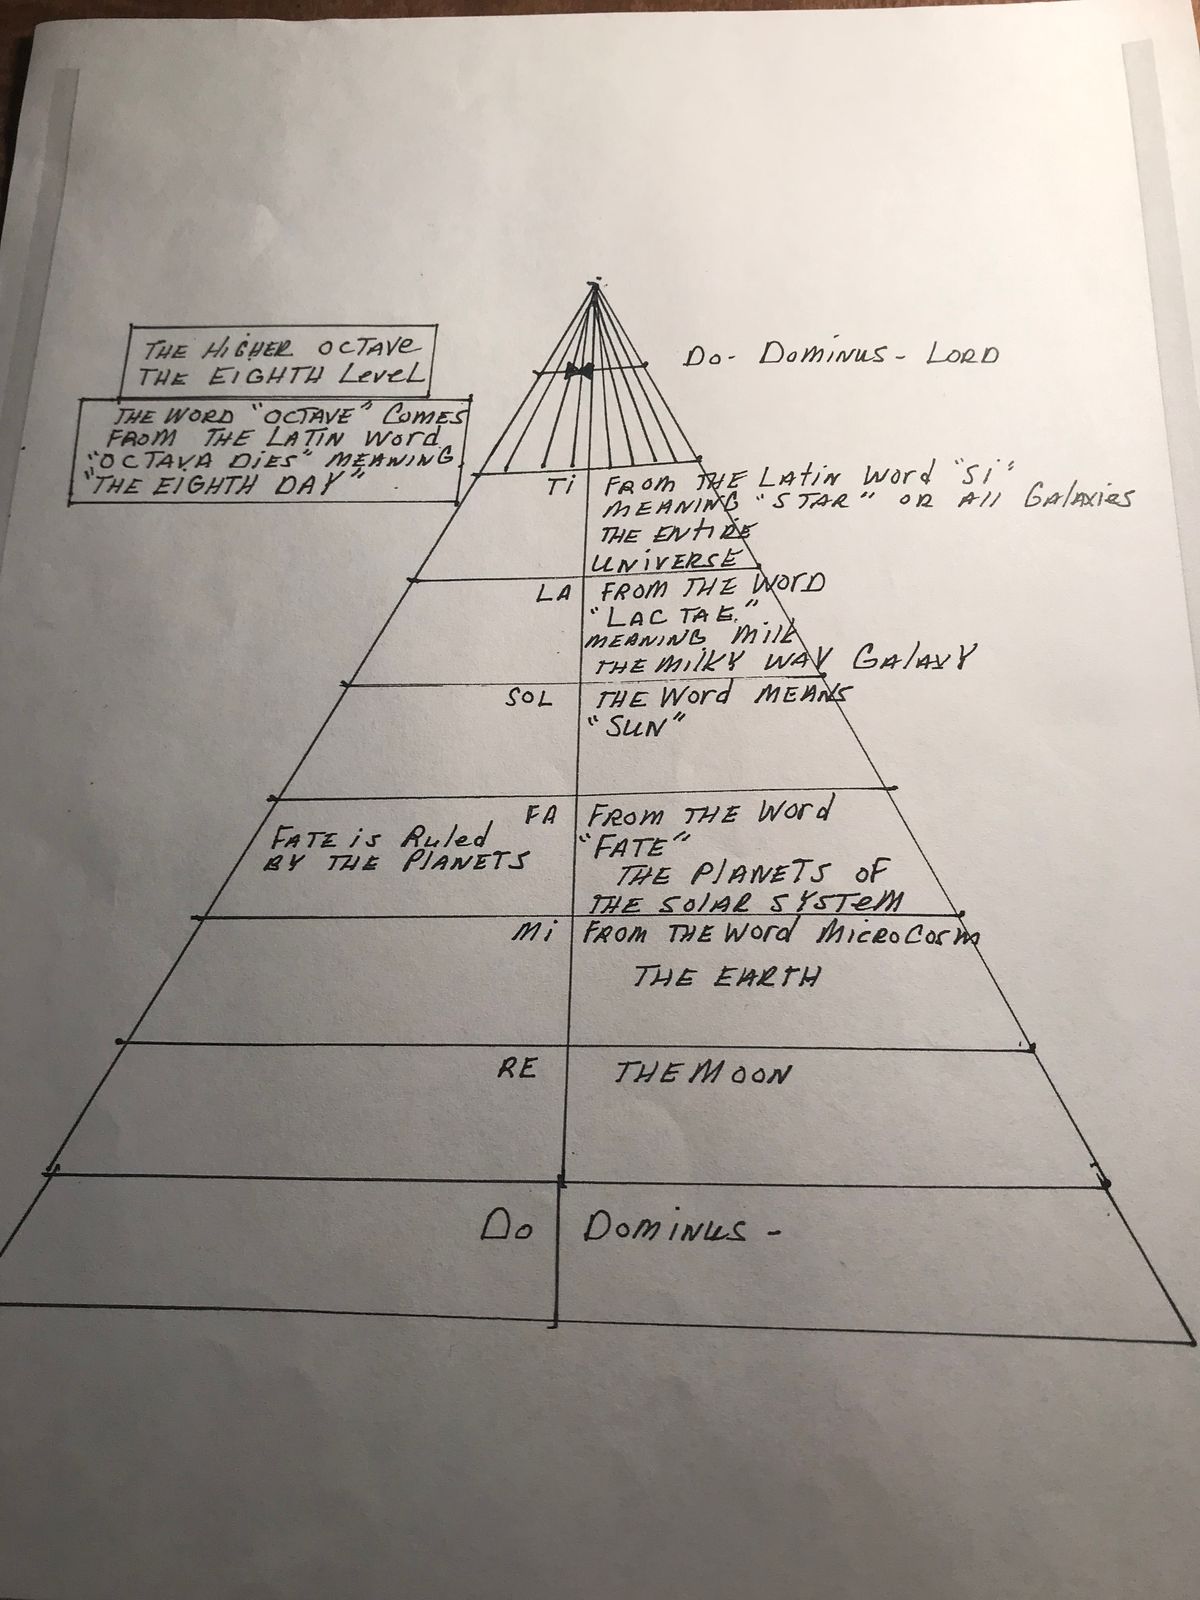 THE HIGHER OCTAVE
THE EIGHTH LEVEL
THE WORD "OCTAVE" COMES
FROM THE LATIN WORD
"OCTAVA DIES" MEANING
"THE EIGHTH DAY"
DO- DOMINUS- LORD
Ti FROM THE LATIN WORD "Si"
MEANING "STAR" OR All GALAXIES
THE ENTIRE
UNIVERSE
LA FROM THE WORD
"LAC TAE."
MEANING MILK
THE MILKY WAY GALAXY
SOL THE WORD MEANS
"SUN"
FA FROM THE WORD
"FATE"
THE PLANETS OF
THE SOLAR SYSTEM
FATE is Ruled
BY THE PLANETS
Mi FROM THE WORD MICROCOSM
THE EARTH
RE THE MOON
DO DOMINUS -